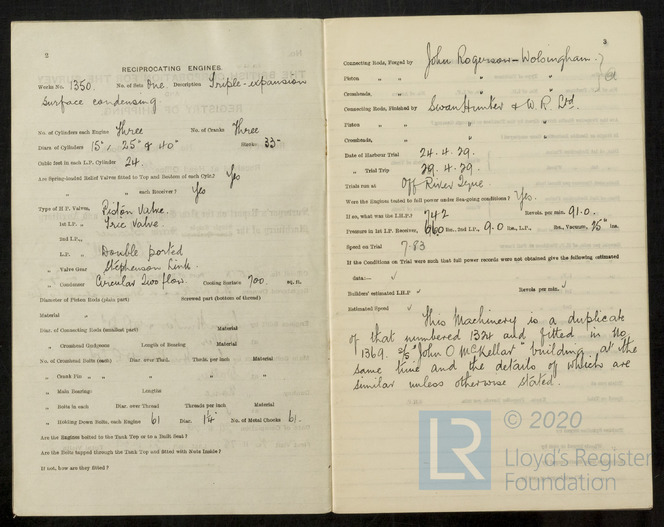 2
RECIPROCATING ENGINES.
Works No. 1350. No. of Sets One. Description Triple-expansion
Surface condensing
No. of Cylinders each Engine Three No. of Cranks Three
Diars. of Cylinders 15", 25" & 40" Stroke 33"
Cubic feet in each L.P. Cylinder 24.
Are Spring-loaded Relief Valves fitted to Top and Bottom of each Cylr.? Yes
„ „ each Receiver? Yes
Type of H.P. Valves, Piston Valve.
1st I.P. „ Valve.
2nd I.P. „
L.P. „ Double ported
„ Valve Gear Stephenson Link.
„ Condenser Circular Two flow. Cooling Surface 700 sq. ft.
Diameter of Piston Rods (plain part) Screwed part (bottom of thread)
Material „
Diar. of Connecting Rods (smallest part) Material
„ Crosshead Gudgeons Length of Bearing Material
No. of Crosshead Bolts (each) Diar. over Thrd. Thrds. per inch Material
„ Crank Pin „ „ „ „ „
„ Main Bearings Lengths
„ Bolts in each Diar. over Thread Threads per inch Material
„ Holding Down Bolts, each Engine 61 Diar. 1¼" No. of Metal Chocks 61.
Are the Engines bolted to the Tank Top or to a Built Seat?
Are the Bolts tapped through the Tank Top and fitted with Nuts Inside?
If not, how are they fitted?
3
Connecting Rods, Forged by John Rogerson – Wolsingham.
Piston „ „ „
Crossheads, „ „
Connecting Rods, Finished by Swan Hunter & W. R. Ltd.
Piston „ „ „
Crossheads, „ „
Date of Harbour Trial 24.4.29.
„ Trial Trip 29.4.29.
Trials run at Off River Tyne
Were the Engines tested to full power under Sea-going conditions? Yes.
If so, what was the I.H.P.? 742 Revols. per min. 91.0.
Pressure in 1st I.P. Receiver, lbs., 2nd I.P., 9.0 lbs., L.P., lbs., Vacuum, ins.
Speed on Trial 7.83
If the Conditions on Trial were such that full power records were not obtained give the following estimated
data:— ✓
Builders' estimated I.H.P. ✓ Revols per min. ✓
Estimated Speed ✓
This Machinery is a duplicate
of that numbered 1324 and fitted in No.
1369. S/S "John O McKellar" building at the
same time and the details of which are
similar unless otherwise stated.
LR © 2020
Lloyd's Register
Foundation